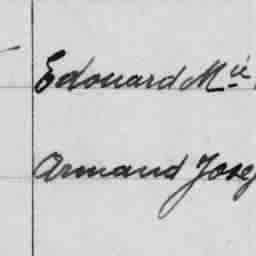 Edouard Mie
Armand Jose